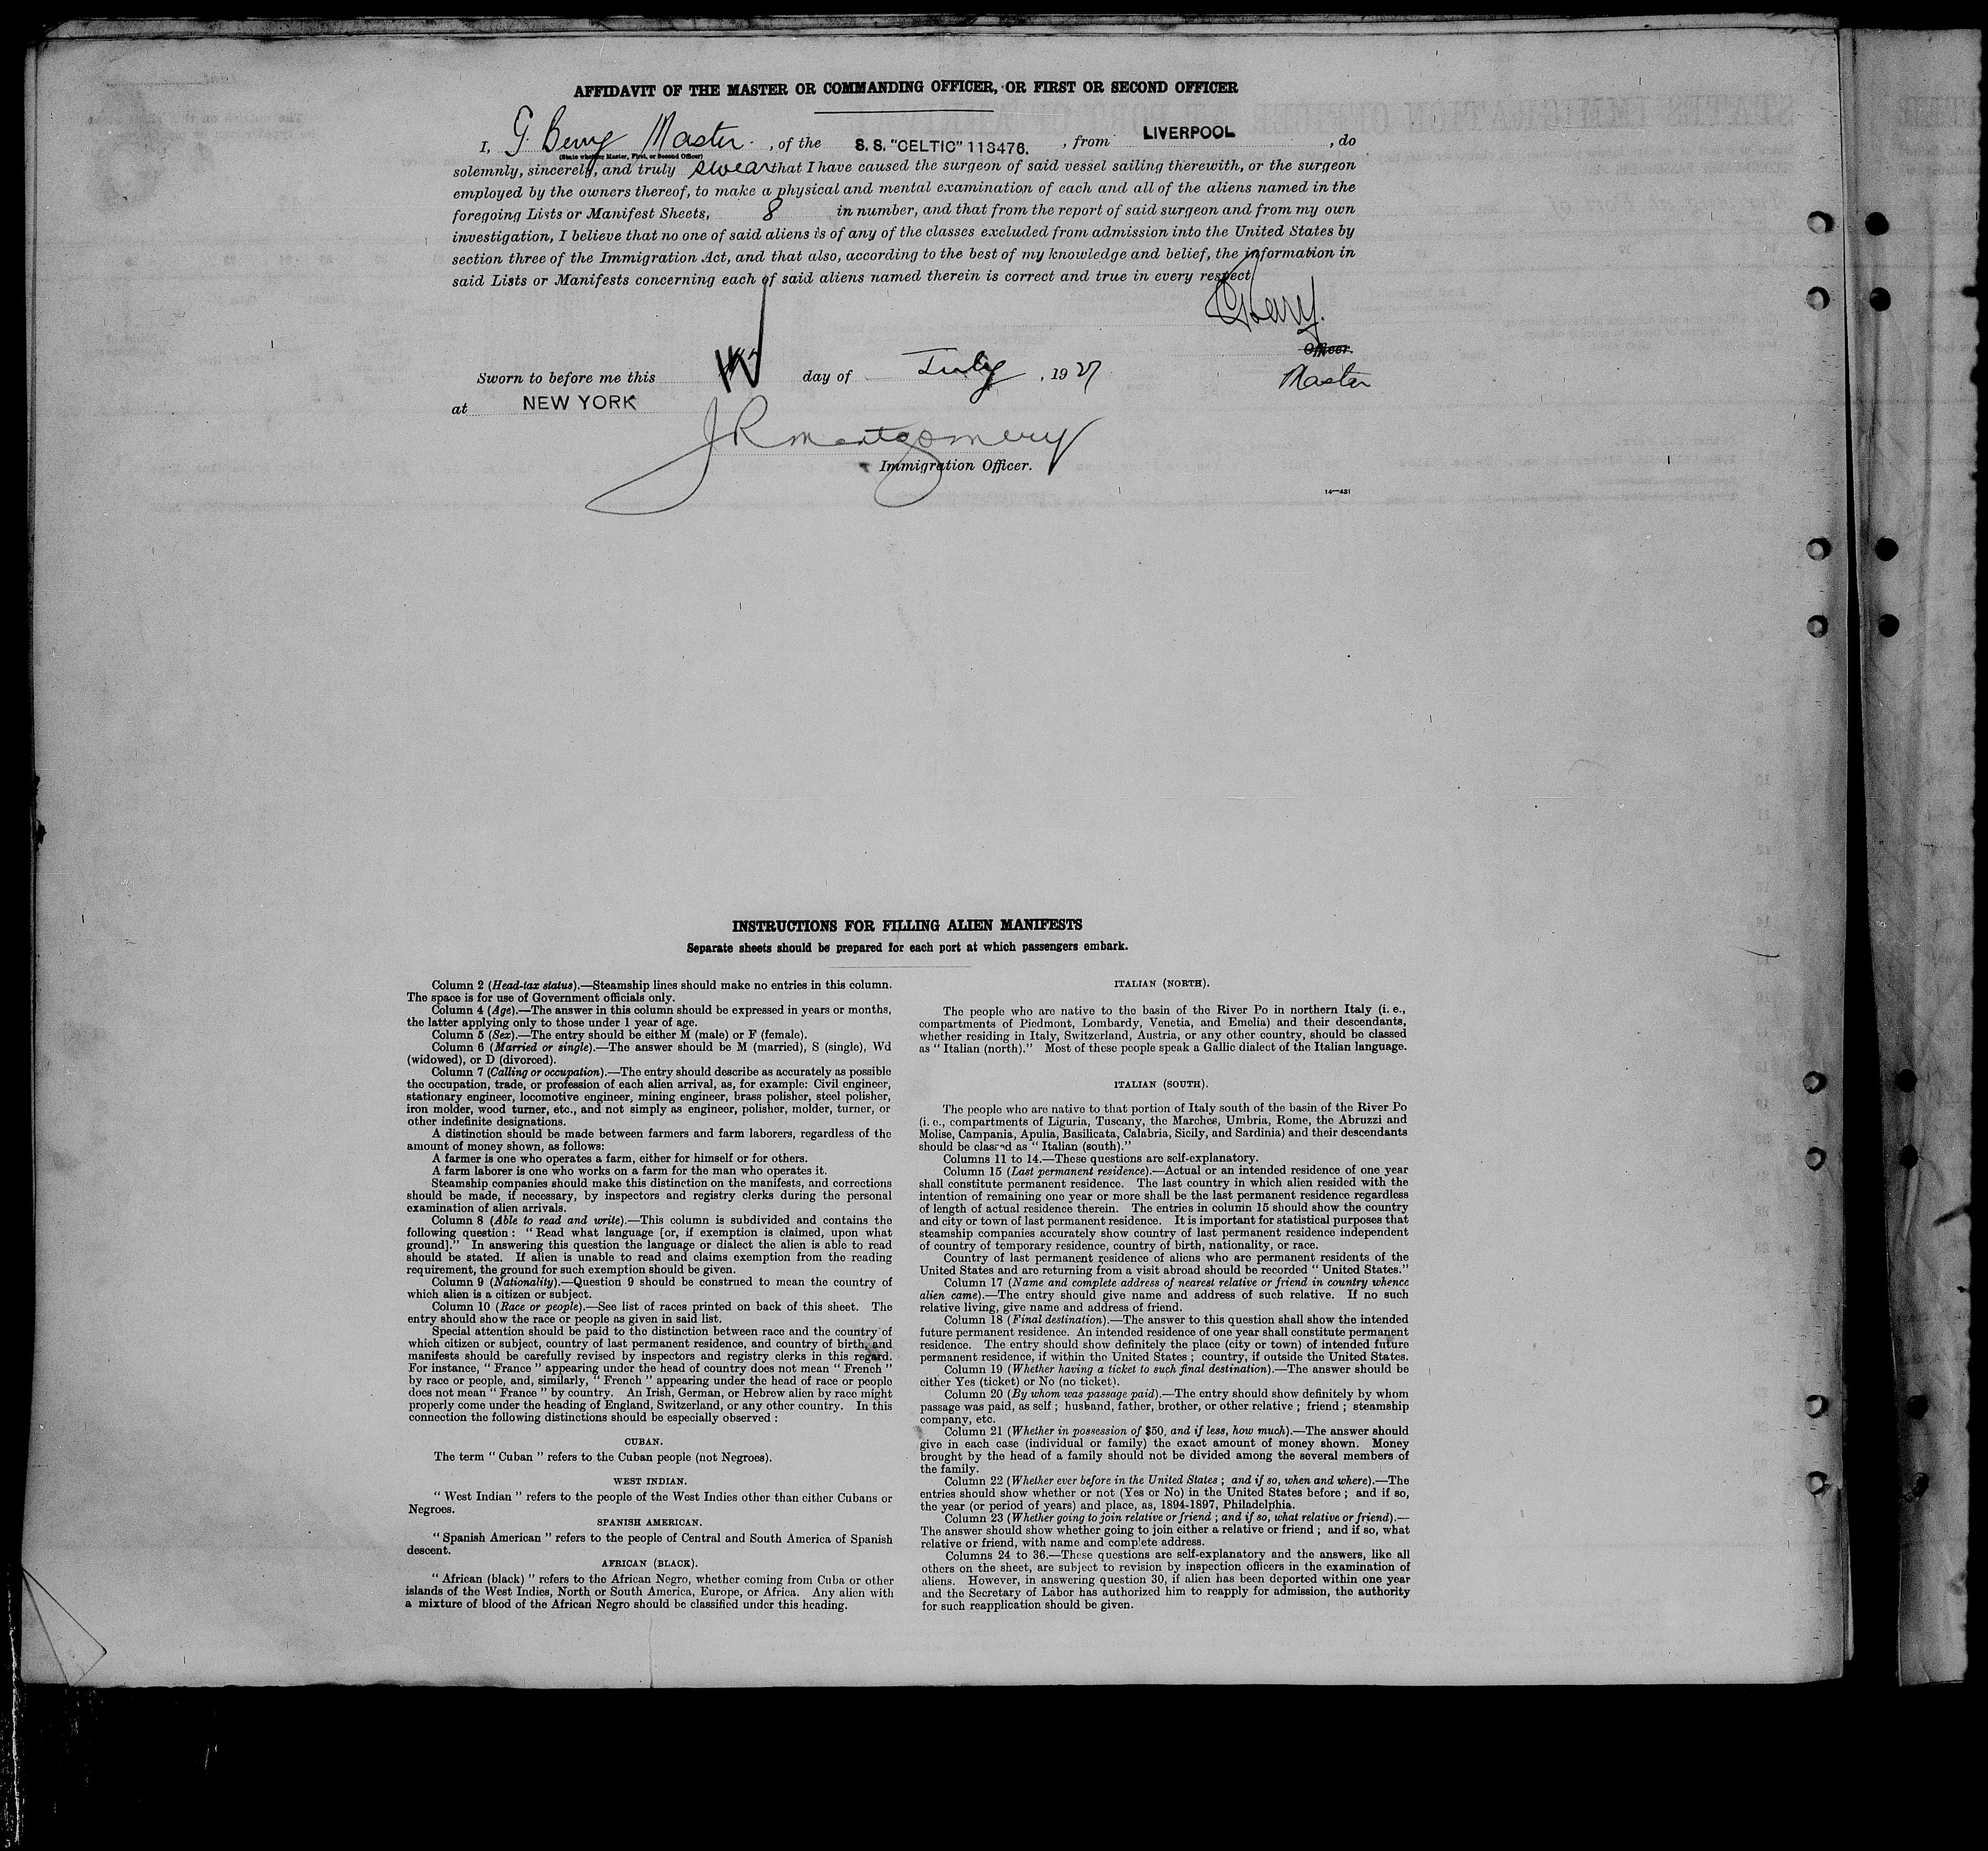 AFFIDAVIT OF THE MASTER OR COMMANDING OFFICER, OR FIRST OR SECOND OFFICER
I, G. Berry Master. , of the S. S. "CELTIC" 113476. , from LIVERPOOL , do
(State whether Master, First, or Second Officer)
solemnly, sincerely, and truly swear that I have caused the surgeon of said vessel sailing therewith, or the surgeon
employed by the owners thereof, to make a physical and mental examination of each and all of the aliens named in the
foregoing Lists or Manifest Sheets, 8 in number, and that from the report of said surgeon and from my own
investigation, I believe that no one of said aliens is of any of the classes excluded from admission into the United States by
section three of the Immigration Act, and that also, according to the best of my knowledge and belief, the information in
said Lists or Manifests concerning each of said aliens named therein is correct and true in every respect.
G Berry.
Officer.
Sworn to before me this day of July , 1927
Master
at NEW YORK
J R Montgomery
Immigration Officer.
14—431
INSTRUCTIONS FOR FILLING ALIEN MANIFESTS
Separate sheets should be prepared for each port at which passengers embark.
Column 2 (Head-tax status).—Steamship lines should make no entries in this column.
The space is for use of Government officials only.
Column 4 (Age).—The answer in this column should be expressed in years or months,
the latter applying only to those under 1 year of age.
Column 5 (Sex).—The entry should be either M (male) or F (female).
Column 6 (Married or single).—The answer should be M (married), S (single), Wd
(widowed), or D (divorced).
Column 7 (Calling or occupation).—The entry should describe as accurately as possible
the occupation, trade, or profession of each alien arrival, as, for example: Civil engineer,
stationary engineer, locomotive engineer, mining engineer, brass polisher, steel polisher,
iron molder, wood turner, etc., and not simply as engineer, polisher, molder, turner, or
other indefinite designations.
A distinction should be made between farmers and farm laborers, regardless of the
amount of money shown, as follows:
A farmer is one who operates a farm, either for himself or for others.
A farm laborer is one who works on a farm for the man who operates it.
Steamship companies should make this distinction on the manifests, and corrections
should be made, if necessary, by inspectors and registry clerks during the personal
examination of alien arrivals.
Column 8 (Able to read and write).—This column is subdivided and contains the
following question: "Read what language [or, if exemption is claimed, upon what
ground]." In answering this question the language or dialect the alien is able to read
should be stated. If alien is unable to read and claims exemption from the reading
requirement, the ground for such exemption should be given.
Column 9 (Nationality).—Question 9 should be construed to mean the country of
which alien is a citizen or subject.
Column 10 (Race or people).—See list of races printed on back of this sheet. The
entry should show the race or people as given in said list.
Special attention should be paid to the distinction between race and the country of
which citizen or subject, country of last permanent residence, and country of birth, and
manifests should be carefully revised by inspectors and registry clerks in this regard.
For instance, "France" appearing under the head of country does not mean "French"
by race or people, and, similarly, "French" appearing under the head of race or people
does not mean "France" by country. An Irish, German, or Hebrew alien by race might
properly come under the heading of England, Switzerland, or any other country. In this
connection the following distinctions should be especially observed:
CUBAN.
The term "Cuban" refers to the Cuban people (not Negroes).
WEST INDIAN.
"West Indian" refers to the people of the West Indies other than either Cubans or
Negroes.
SPANISH AMERICAN.
"Spanish American" refers to the people of Central and South America of Spanish
descent.
AFRICAN (BLACK).
"African (black)" refers to the African Negro, whether coming from Cuba or other
islands of the West Indies, North or South America, Europe, or Africa. Any alien with
a mixture of blood of the African Negro should be classified under this heading.
ITALIAN (NORTH).
The people who are native to the basin of the River Po in northern Italy (i. e.,
compartments of Piedmont, Lombardy, Venetia, and Emelia) and their descendants,
whether residing in Italy, Switzerland, Austria, or any other country, should be classed
as "Italian (north)." Most of these people speak a Gallic dialect of the Italian language.
ITALIAN (SOUTH).
The people who are native to that portion of Italy south of the basin of the River Po
(i. e., compartments of Liguria, Tuscany, the Marches, Umbria, Rome, the Abruzzi and
Molise, Campania, Apulia, Basilicata, Calabria, Sicily, and Sardinia) and their descendants
should be classed as "Italian (south)."
Columns 11 to 14.—These questions are self-explanatory.
Column 15 (Last permanent residence).—Actual or an intended residence of one year
shall constitute permanent residence. The last country in which alien resided with the
intention of remaining one year or more shall be the last permanent residence regardless
of length of actual residence therein. The entries in column 15 should show the country
and city or town of last permanent residence. It is important for statistical purposes that
steamship companies accurately show country of last permanent residence independent
of country of temporary residence, country of birth, nationality, or race.
Country of last permanent residence of aliens who are permanent residents of the
United States and are returning from a visit abroad should be recorded "United States."
Column 17 (Name and complete address of nearest relative or friend in country whence
alien came).—The entry should give name and address of such relative. If no such
relative living, give name and address of friend.
Column 18 (Final destination).—The answer to this question shall show the intended
future permanent residence. An intended residence of one year shall constitute permanent
residence. The entry should show definitely the place (city or town) of intended future
permanent residence, if within the United States; country, if outside the United States.
Column 19 (Whether having a ticket to such final destination).—The answer should be
either Yes (ticket) or No (no ticket).
Column 20 (By whom was passage paid).—The entry should show definitely by whom
passage was paid, as self; husband, father, brother, or other relative; friend; steamship
company, etc.
Column 21 (Whether in possession of $50, and if less, how much).—The answer should
give in each case (individual or family) the exact amount of money shown. Money
brought by the head of a family should not be divided among the several members of
the family.
Column 22 (Whether ever before in the United States; and if so, when and where).—The
entries should show whether or not (Yes or No) in the United States before; and if so,
the year (or period of years) and place, as, 1894-1897, Philadelphia.
Column 23 (Whether going to join relative or friend; and if so, what relative or friend).—
The answer should show whether going to join either a relative or friend; and if so, what
relative or friend, with name and complete address.
Columns 24 to 36.—These questions are self-explanatory and the answers, like all
others on the sheet, are subject to revision by inspection officers in the examination of
aliens. However, in answering question 30, if alien has been deported within one year
and the Secretary of Labor has authorized him to reapply for admission, the authority
for such reapplication should be given.